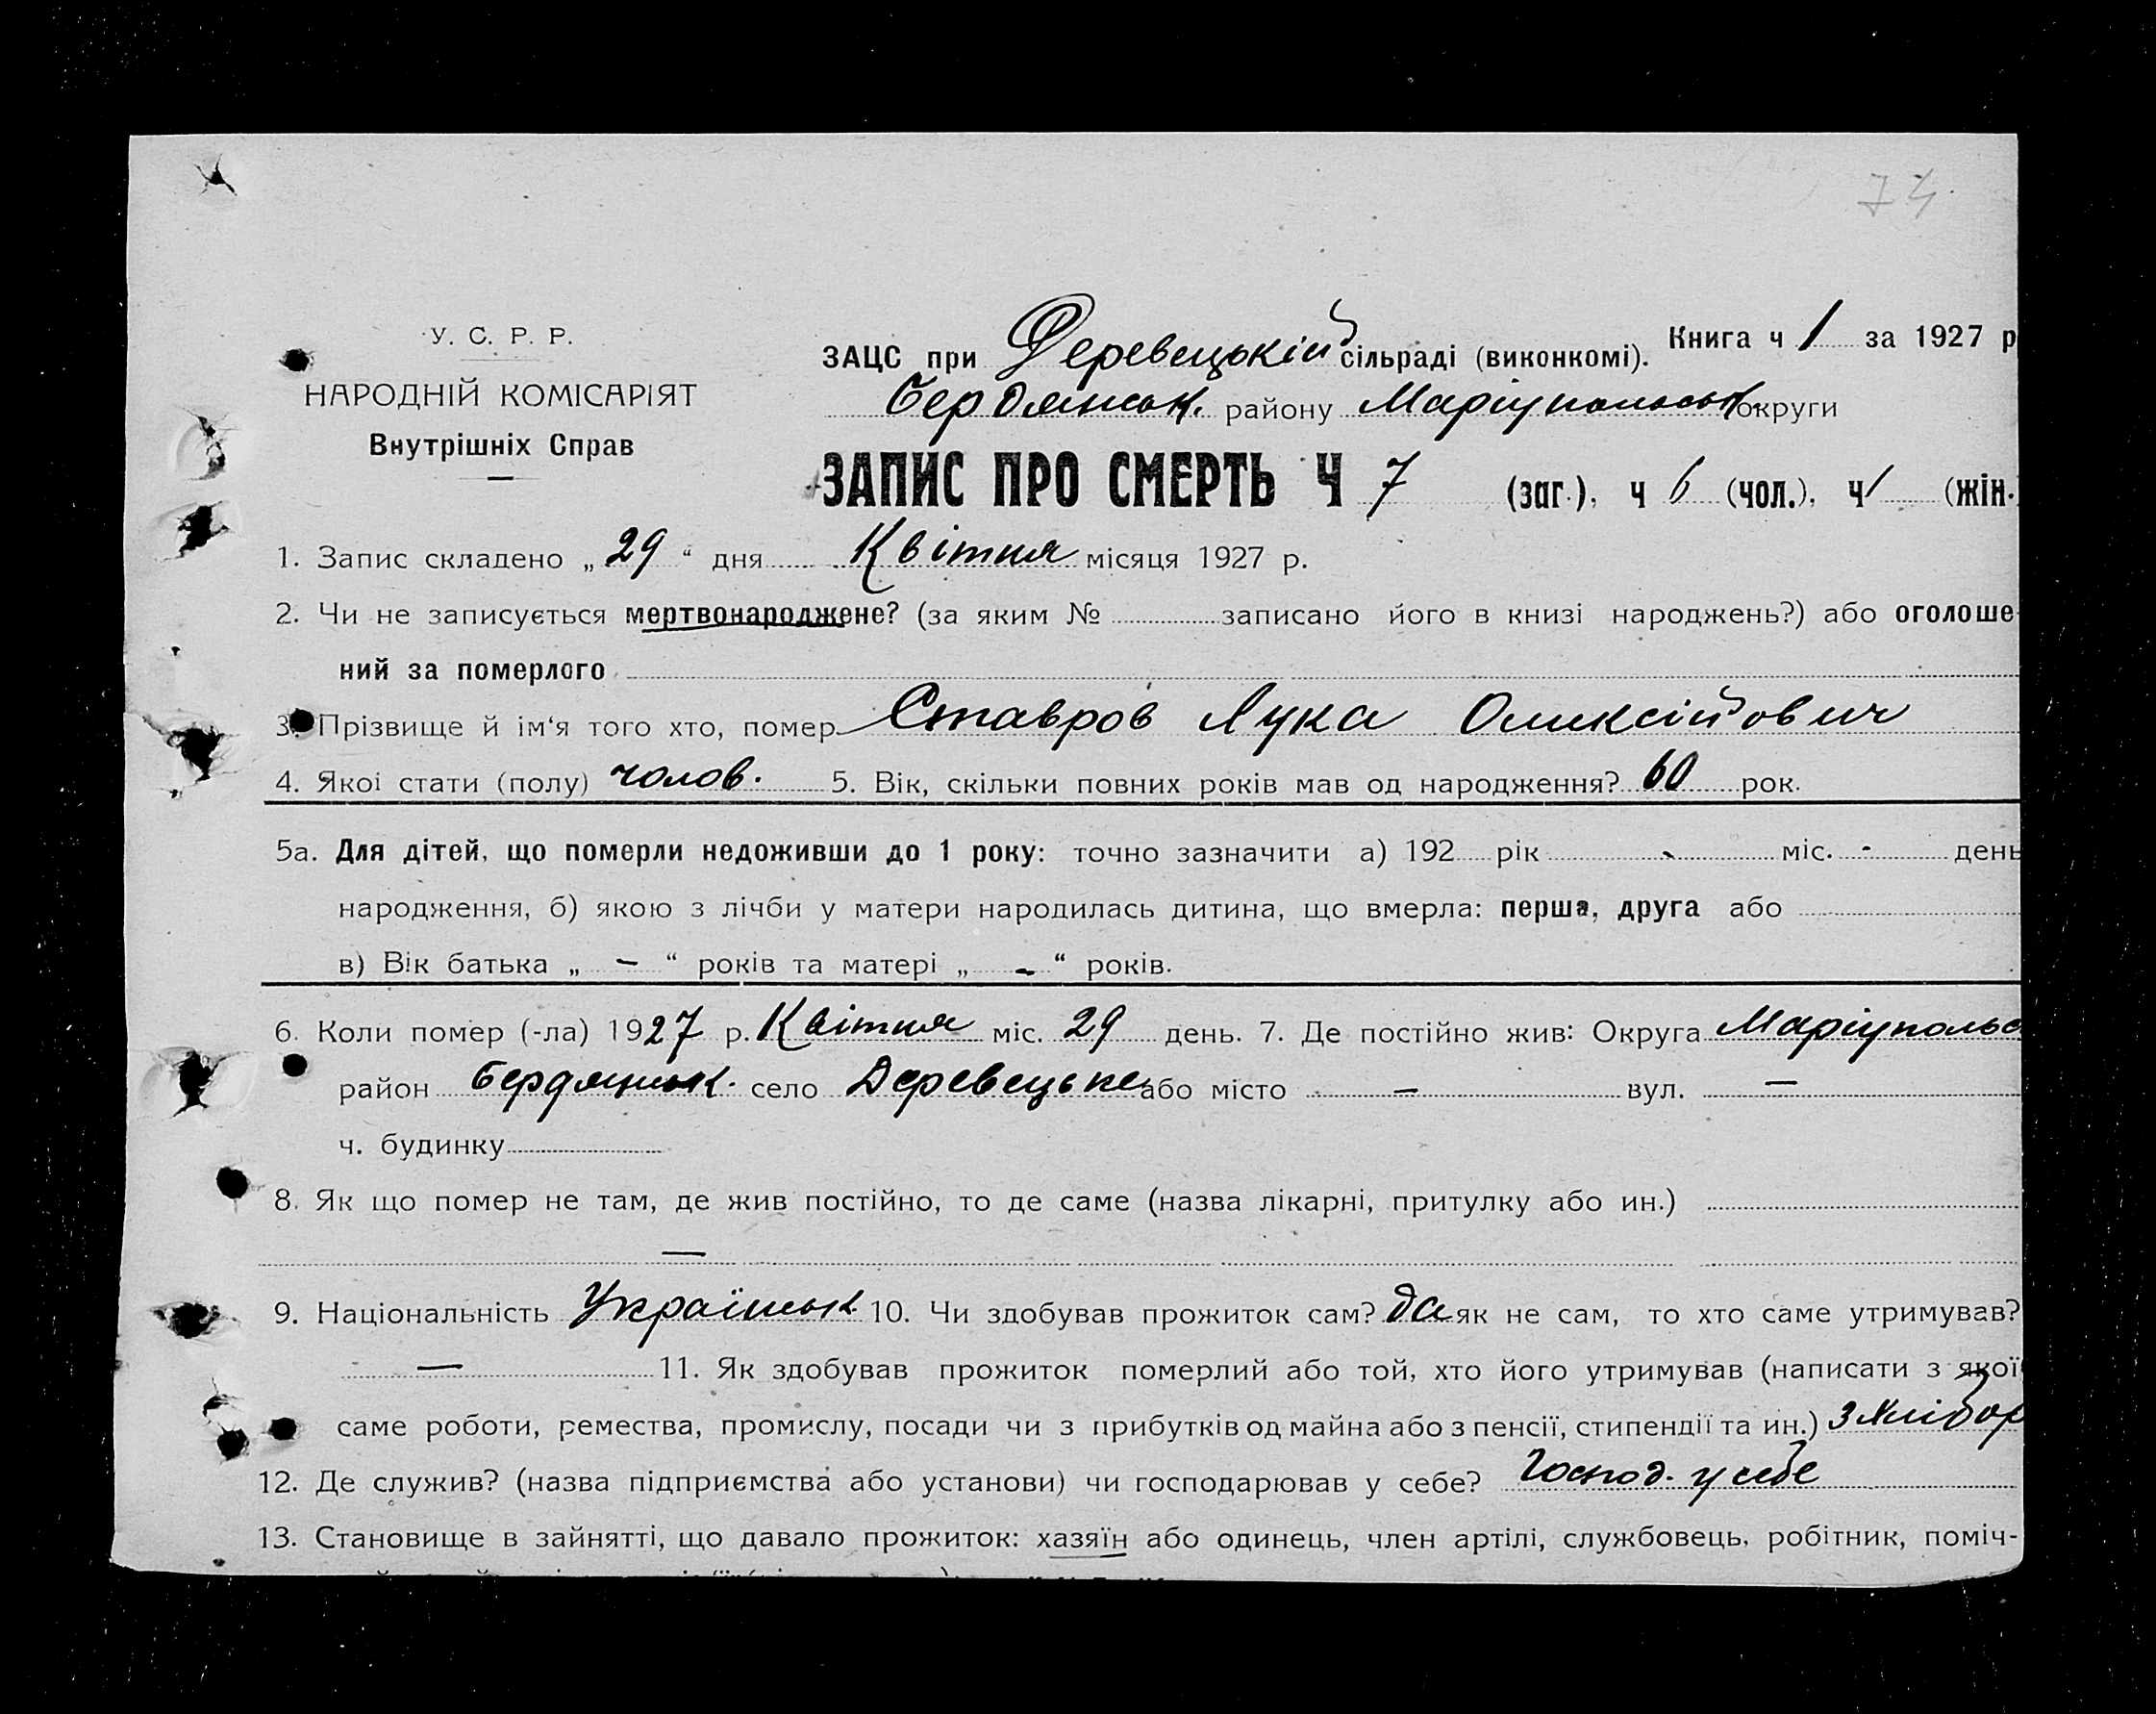 74.
У. С. Р. Р.
НАРОДНІЙ КОМІСАРІЯТ
Внутрішніх Справ
Книга ч 1 за 1927 р
ЗАЦС при Деревецькій сільраді (виконкомі).
Бердянськ. району Маріупольськ округи
ЗАПИС ПРО СМЕРТЬ Ч 7 (заг.), ч 6 (чол.), ч 1 (жін.)
1. Запис складено „ 29 “ дня Квітня місяця 1927 р.
2. Чи не записується мертвонароджене? (за яким № записано його в книзі народжень?) або оголоше-
ний за померлого
3. Прізвище й ім‘я того хто, помер Ставров Лука Оликсійович
4. Якої стати (полу) чолов. 5. Вік, скільки повних років мав од народження? 60 рок.
5а. Для дітей, що померли недоживши до 1 року: точно зазначити а) 192 рік - міс. - день
народження, б) якою з лічби у матери народилась дитина, що вмерла: перша, друга або
в) Вік батька „ — “ років та матері „ - “ років.
6. Коли помер (-ла) 1927 р. Квітня міс. 29 день. 7. Де постійно жив: Округа Маріупольс
район Бердянськ. село Деревецьке або місто — вул. —
ч. будинку
8. Як що помер не там, де жив постійно, то де саме (назва лікарні, притулку або ин.)
—
9. Національність Українськ. 10. Чи здобував прожиток сам? да як не сам, то хто саме утримував?
— 11. Як здобував прожиток померлий або той, хто його утримував (написати з якої
саме роботи, ремества, промислу, посади чи з прибутків од майна або з пенсії, стипендії та ин.) З хлібор
12. Де служив? (назва підприємства або установи) чи господарював у себе? Господ. у себе
13. Становище в зайнятті, що давало прожиток: хазяїн або одинець, член артілі, службовець, робітник, поміч-